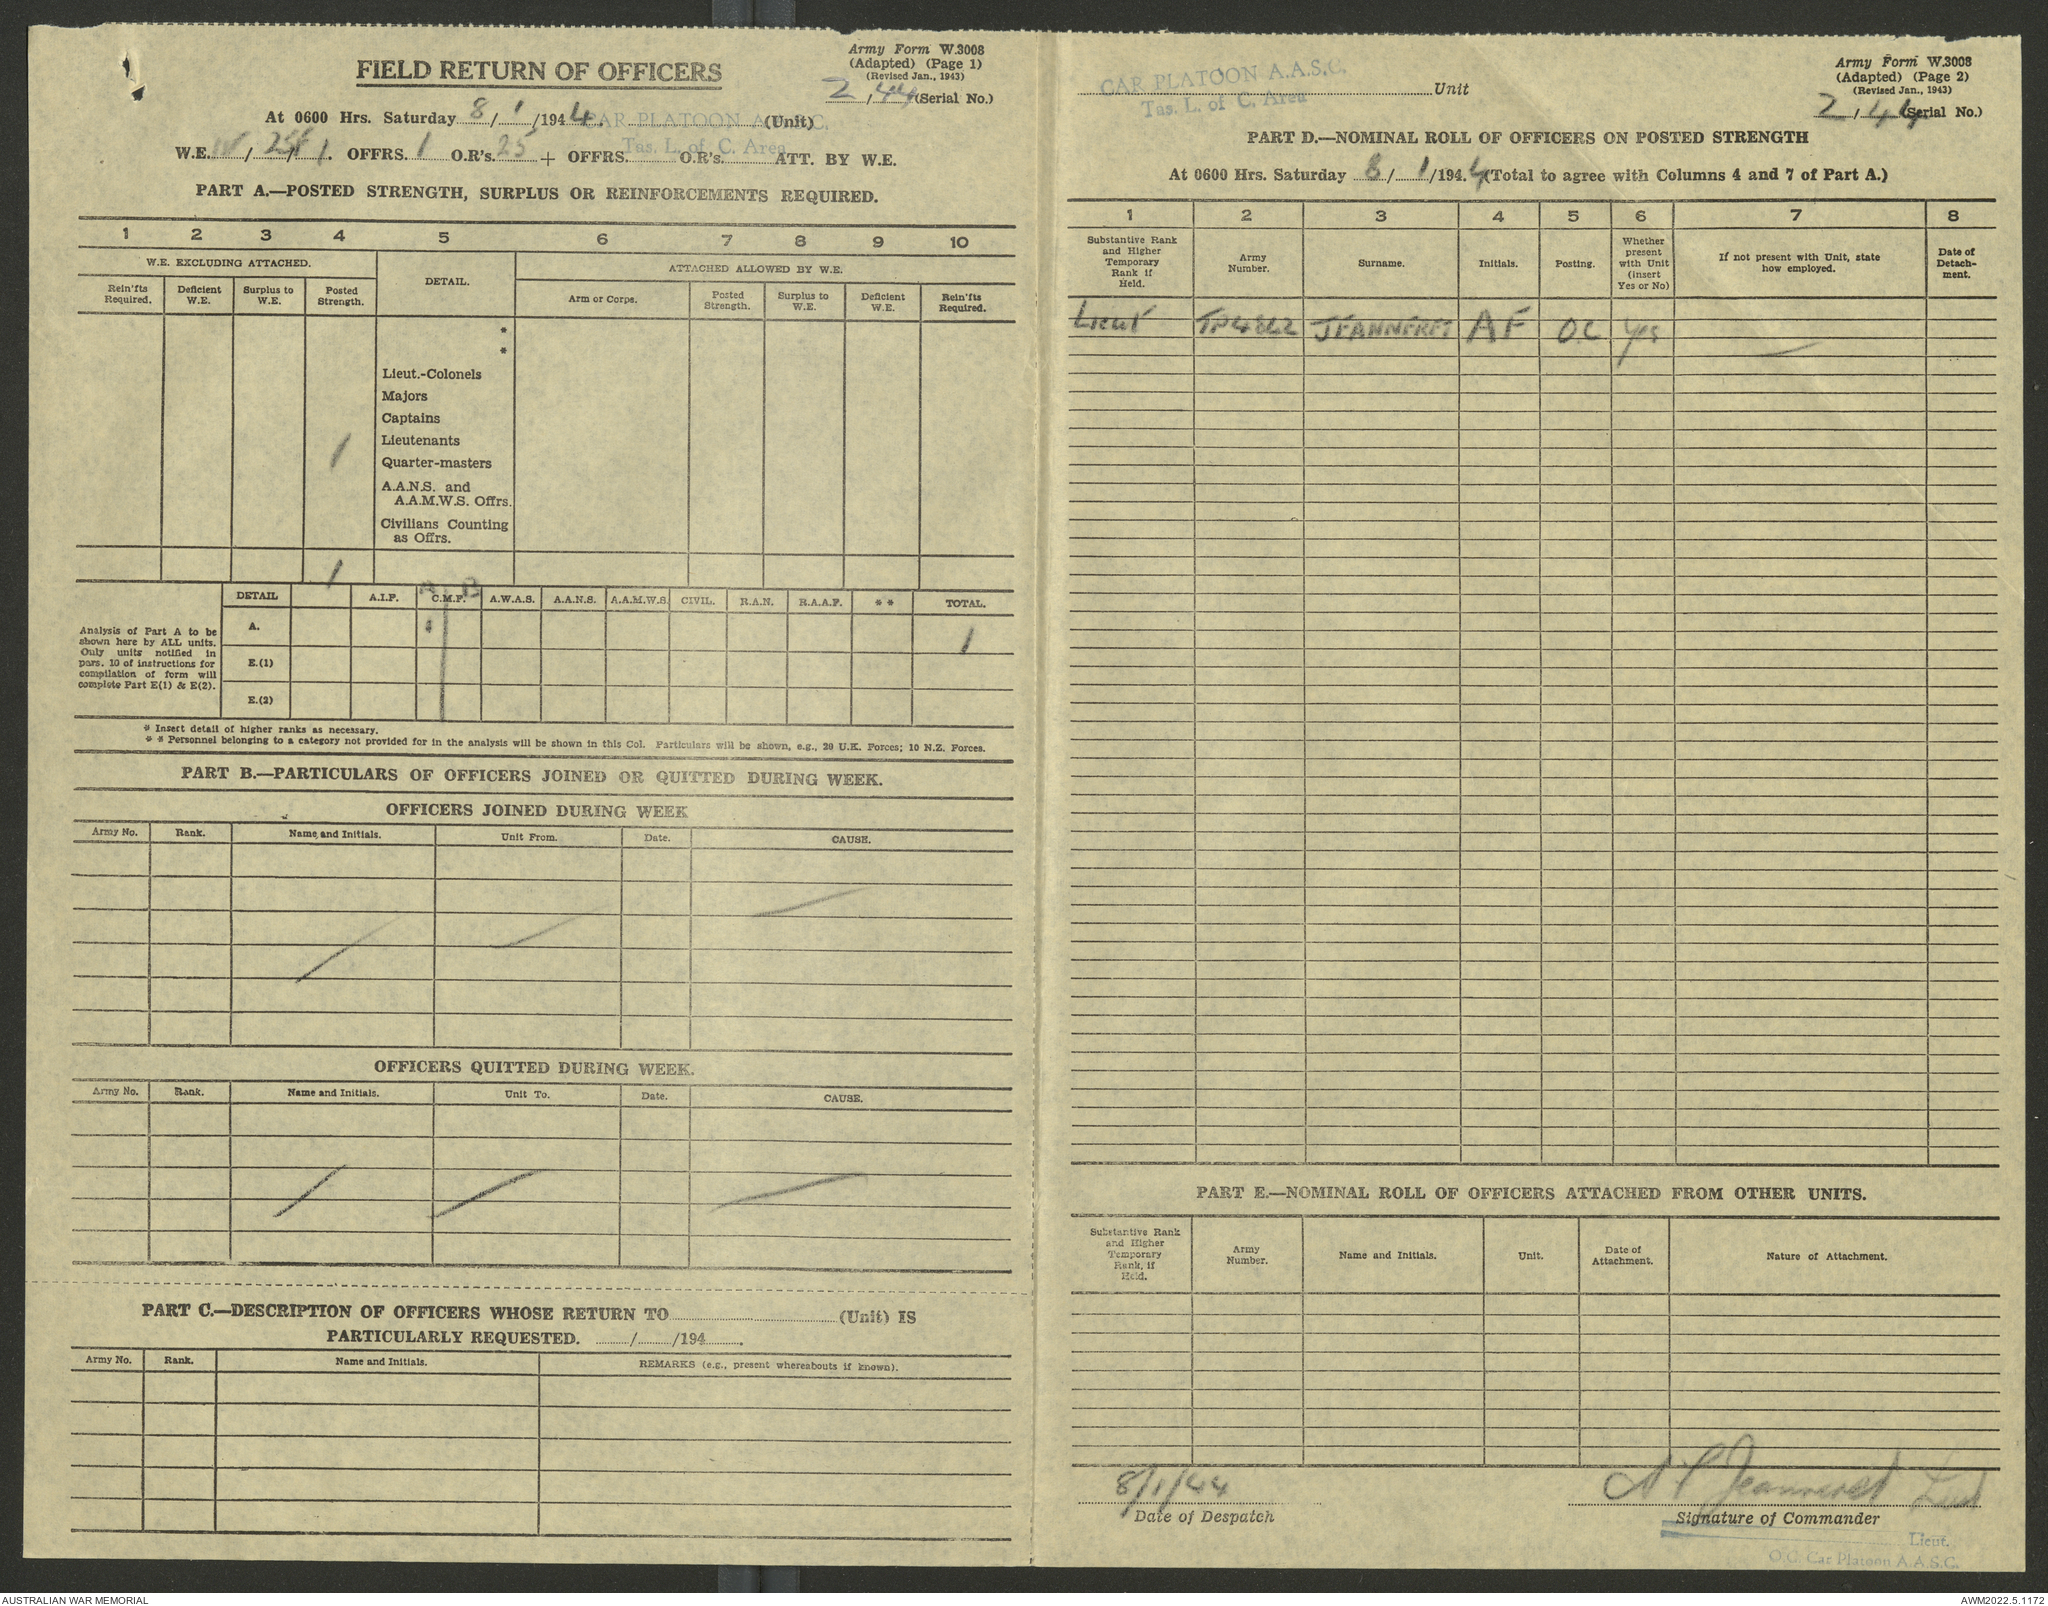 FIELD RETURN OF OFFICERS
Army Form W.3008
(Adapted) (Page 1)
(Revised Jan., 1943)
2/44 (Serial No.)
At 0600 Hrs. Saturday 8/1/1944. CAR PLATOON A.A.S.C. (Unit)
Tas. L. of C. Area
W.E. IV/25F/1. OFFRS. 1 O.R's. 25 + OFFRS. O.R's. ATT. BY W.E.
PART A.—POSTED STRENGTH, SURPLUS OR REINFORCEMENTS REQUIRED.
1 2 3 4 5 6 7 8 9 10
W.E. EXCLUDING ATTACHED. DETAIL. ATTACHED ALLOWED BY W.E.
Rein'fts Required. Deficient W.E. Surplus to W.E. Posted Strength. Arm or Corps. Posted Strength. Surplus to W.E. Deficient W.E. Rein'fts Required.
*
*
Lieut.-Colonels
Majors
Captains
Lieutenants
1 Quarter-masters
A.A.N.S. and
A.A.M.W.S. Offrs.
Civilians Counting
as Offrs.
1
A B
DETAIL A.I.F. C.M.F. A.W.A.S. A.A.N.S. A.A.M.W.S. CIVIL. R.A.N. R.A.A.F. * * TOTAL.
A. 1 1
E.(1)
E.(2)
Analysis of Part A to be
shown here by ALL units.
Only units notified in
pars. 10 of instructions for
compilation of form will
complete Part E(1) & E(2).
* Insert detail of higher ranks as necessary.
* * Personnel belonging to a category not provided for in the analysis will be shown in this Col. Particulars will be shown, e.g., 29 U.K. Forces; 10 N.Z. Forces.
PART B.—PARTICULARS OF OFFICERS JOINED OR QUITTED DURING WEEK.
OFFICERS JOINED DURING WEEK
Army No. Rank. Name and Initials. Unit From. Date. CAUSE.
OFFICERS QUITTED DURING WEEK.
Army No. Rank. Name and Initials. Unit To. Date. CAUSE.
PART C.—DESCRIPTION OF OFFICERS WHOSE RETURN TO (Unit) IS
PARTICULARLY REQUESTED. / /194 .
Army No. Rank. Name and Initials. REMARKS (e.g., present whereabouts if known).
CAR PLATOON A.A.S.C. Unit
Tas. L. of C. Area
Army Form W.3008
(Adapted) (Page 2)
(Revised Jan., 1943)
2/44 (Serial No.)
PART D.—NOMINAL ROLL OF OFFICERS ON POSTED STRENGTH
At 0600 Hrs. Saturday 8/1/1944 (Total to agree with Columns 4 and 7 of Part A.)
1 2 3 4 5 6 7 8
Substantive Rank and Higher Temporary Rank if Held. Army Number. Surname. Initials. Posting. Whether present with Unit (insert Yes or No) If not present with Unit, state how employed. Date of Detach-ment.
Lieut TP4842 JEANNERET AF O.C Yes
PART E.—NOMINAL ROLL OF OFFICERS ATTACHED FROM OTHER UNITS.
Substantive Rank and Higher Temporary Rank, if Held. Army Number. Name and Initials. Unit. Date of Attachment. Nature of Attachment.
8/1/44 A F Jeanneret Lieut
Date of Despatch Signature of Commander
Lieut.
O.C. Car Platoon A.A.S.C.
AUSTRALIAN WAR MEMORIAL AWM2022.5.1172